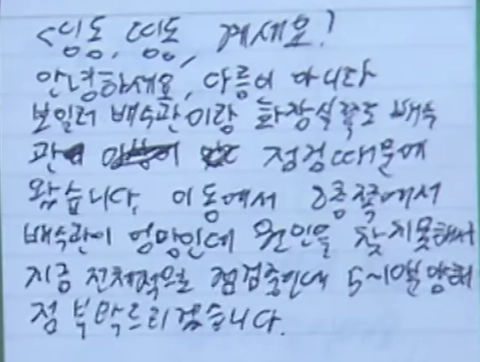 <띵동, 띵동, 계세요?
안녕하세요, 다름이 아니라
보일러 배수관이랑 화장실쪽도 배수
관 점검때문에
왔습니다. 이 동에서 2층쪽에서
배수관이 엉망인데 원인을 찾지못해서
지금 전체적으로 점검중인데 5~10분
점 부탁드리겠습니다.